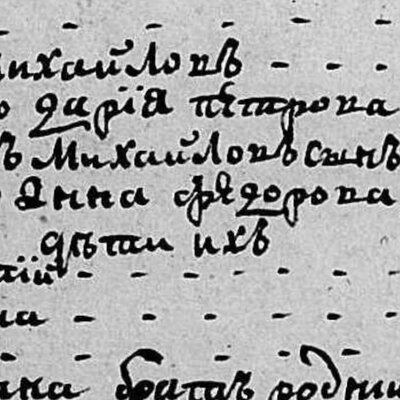 Михайловъ
Дарїя Петрова
Михайловъ сынъ
Анна Федорова
дѣтаи ихъ
братъ родни